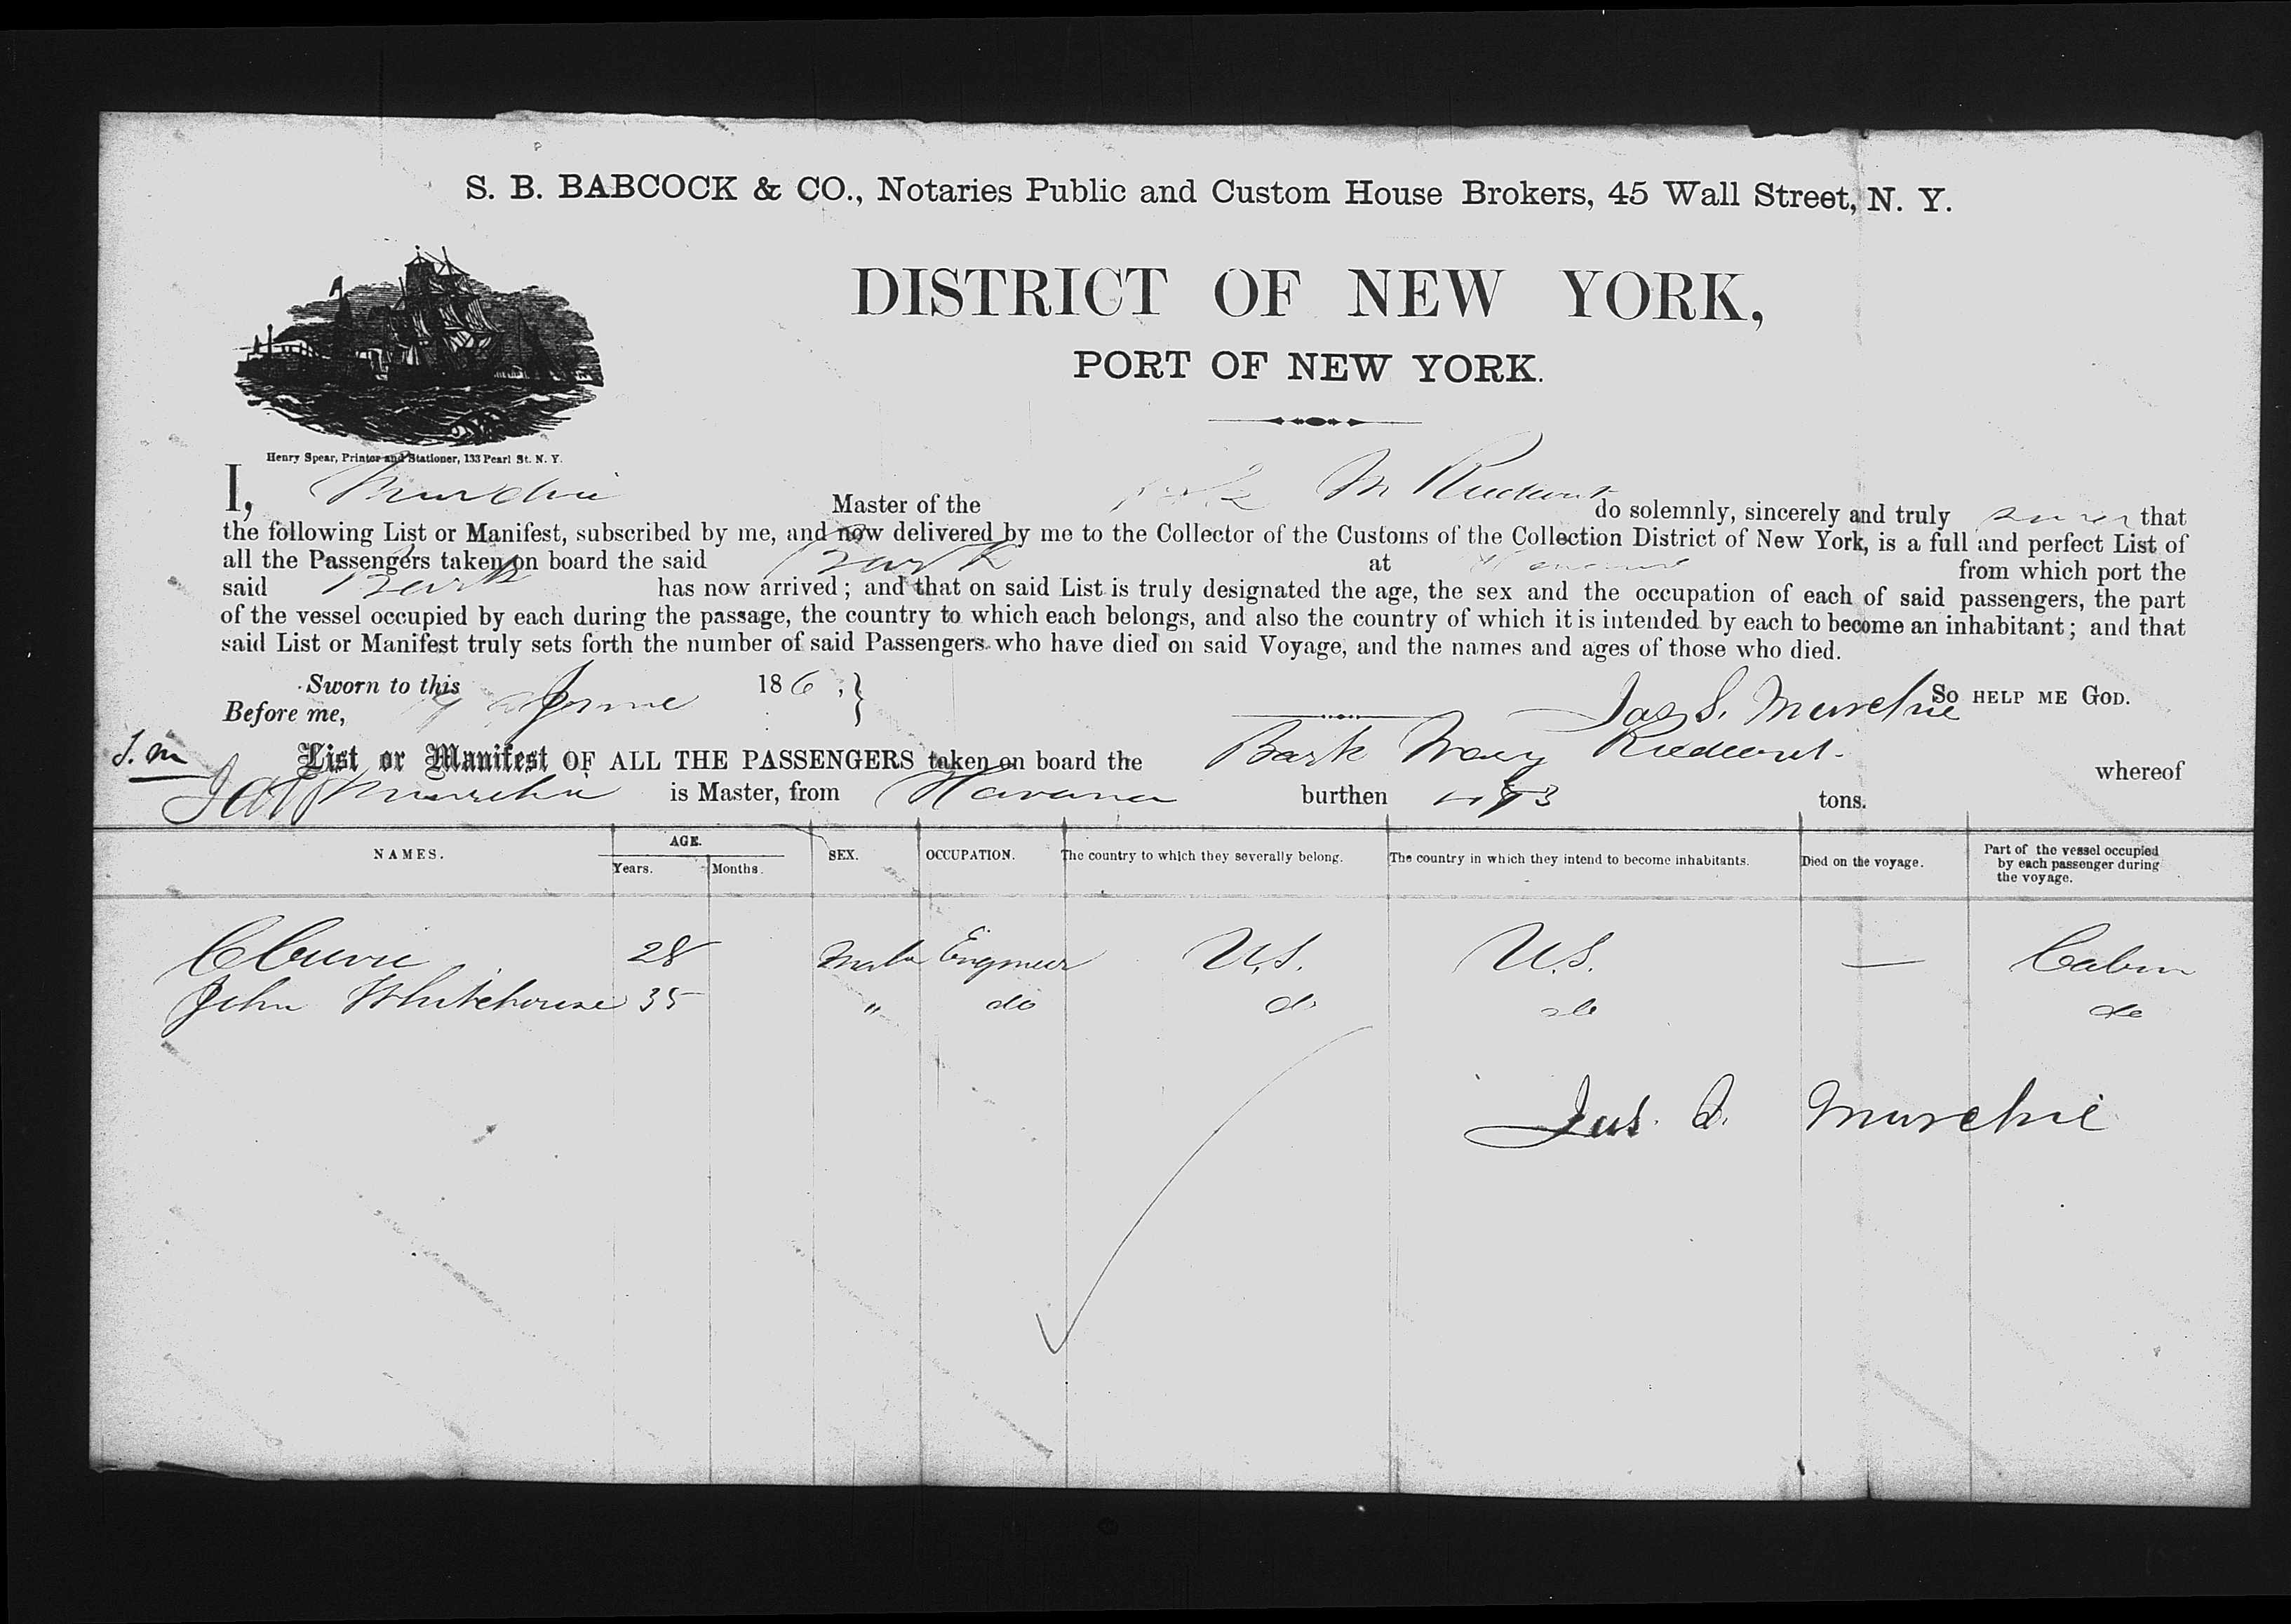 S. B. BABCOCK & CO., Notaries Public and Custom House Brokers, 45 Wall Street, N. Y.
DISTRICT OF NEW YORK,
PORT OF NEW YORK.
Henry Spear, Printer and Stationer, 133 Pearl St. N. Y.
I, Murchie Master of the M do solemnly, sincerely and truly that
the following List or Manifest, subscribed by me, and now delivered by me to the Collector of the Customs of the Collection District of New York, is a full and perfect List of
all the Passengers taken on board the said Bark at Havana from which port the
said Bark has now arrived; and that on said List is truly designated the age, the sex and the occupation of each of said passengers, the part
of the vessel occupied by each during the passage, the country to which each belongs, and also the country of which it is intended by each to become an inhabitant; and that
said List or Manifest truly sets forth the number of said Passengers who have died on said Voyage, and the names and ages of those who died.
Sworn to this June 186 } So HELP ME GOD.
Before me, Jas S. Murchie
J. M List or Manifest OF ALL THE PASSENGERS taken on board the Bark Mary whereof
Jas S Murchie is Master, from Havana burthen tons.
NAMES. AGE. Years. Months. SEX. OCCUPATION. The country to which they severally belong. The country in which they intend to become inhabitants. Died on the voyage. Part of the vessel occupied by each passenger during the voyage.
28 Male Engineer U.S. U.S. — Cabin
John Whitehouse 35 " do do do do
Jas. S. Murchie